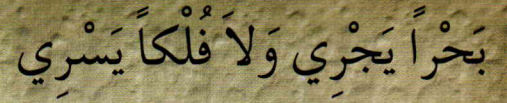 بَحْراً يَجْرِي وَلاَ فُلْكاً يَسْرِي